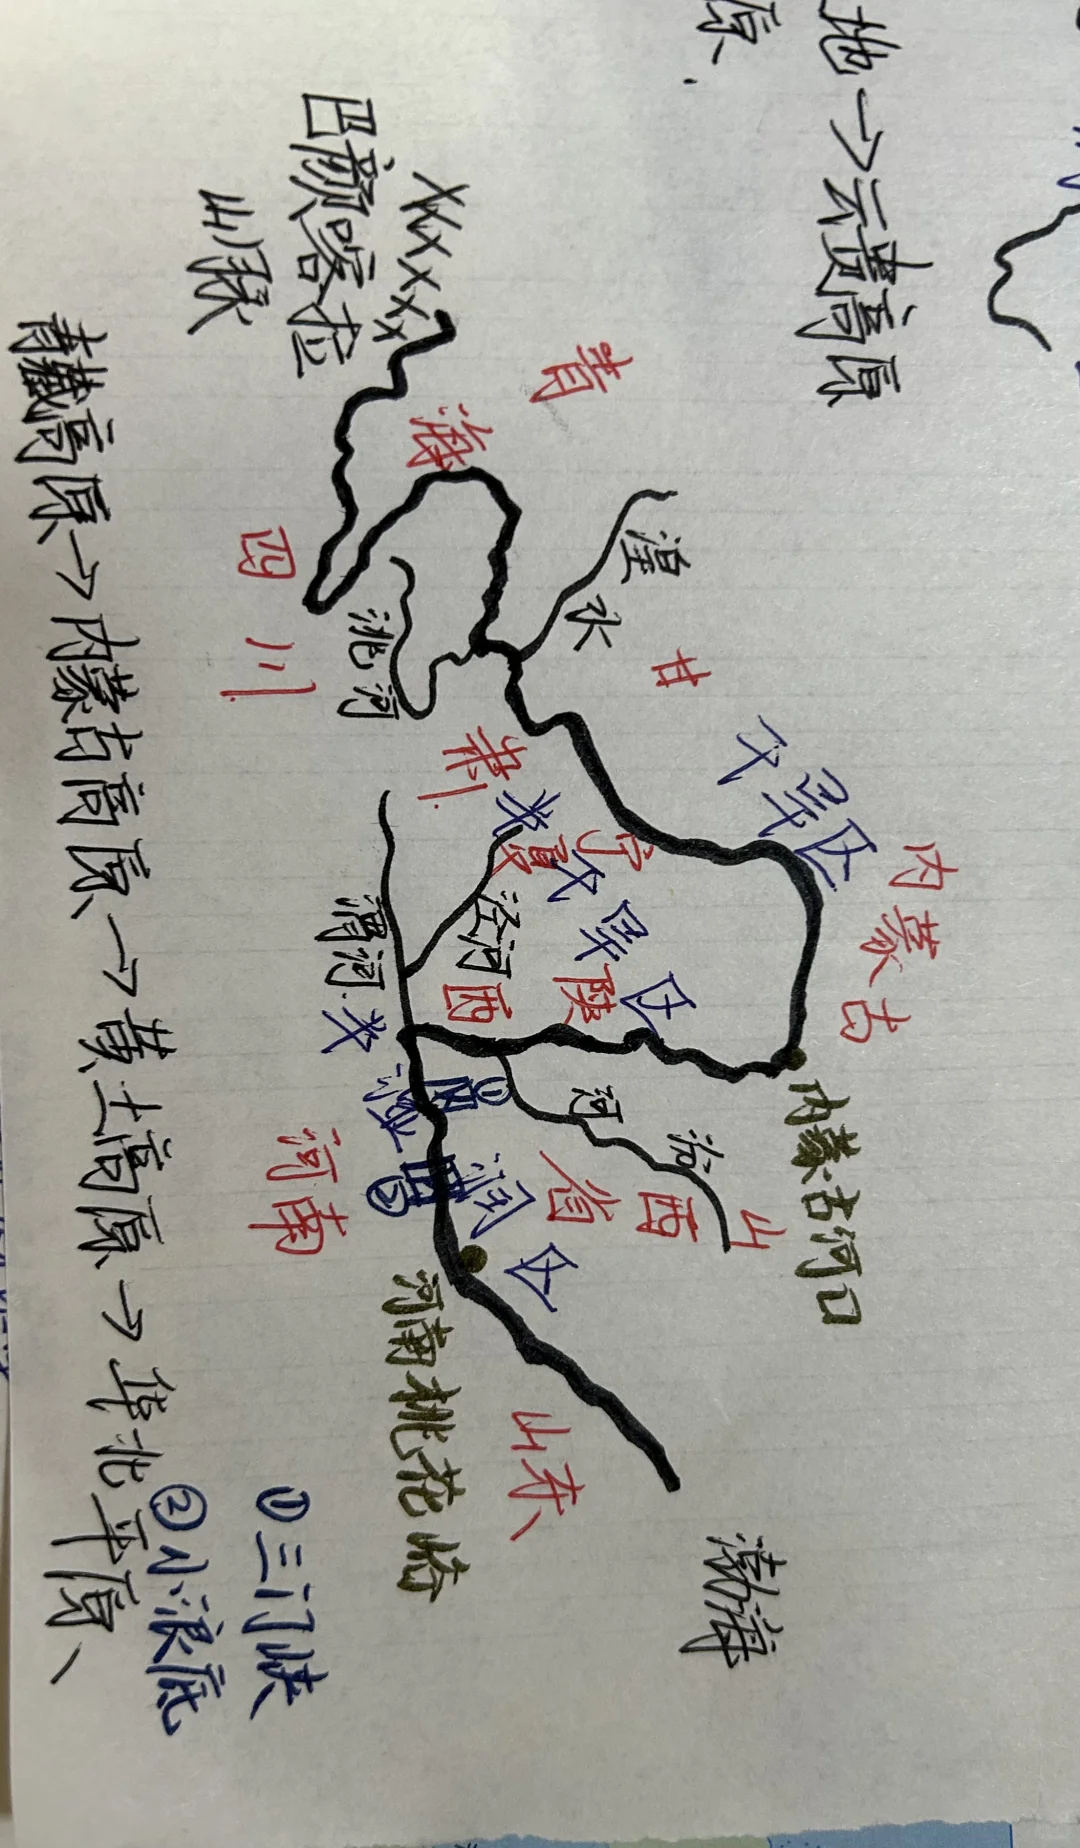 地→云贵高原
原、
巴颜喀拉
山脉
青
海
湟
水
甘
肃
干旱区
内
蒙
古
内蒙古河口
四
川
洮河
宁
夏
半
干
旱
区
泾河
陕
西
渭河
半
湿
润
区
①
②
汾
河
山
西
省
河南
河南桃花峪
山东
渤海
①三门峡
②小浪底
青藏高原→内蒙古高原→黄土高原→华北平原、